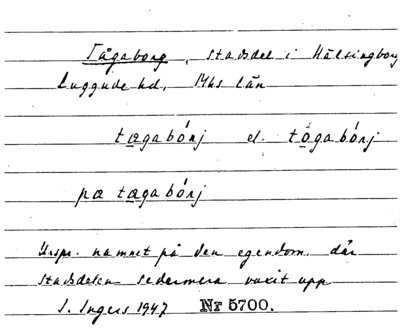 Tågaborg, stadsdel i Hälsingborg
Luggude hd, Mhs län
tægabórj el. tǫgabórj
pæ tægabórj
Urspr. namnet på den egendom där
stadsdelen sedermera vuxit upp
I. Ingers 1947 Nr 5700.